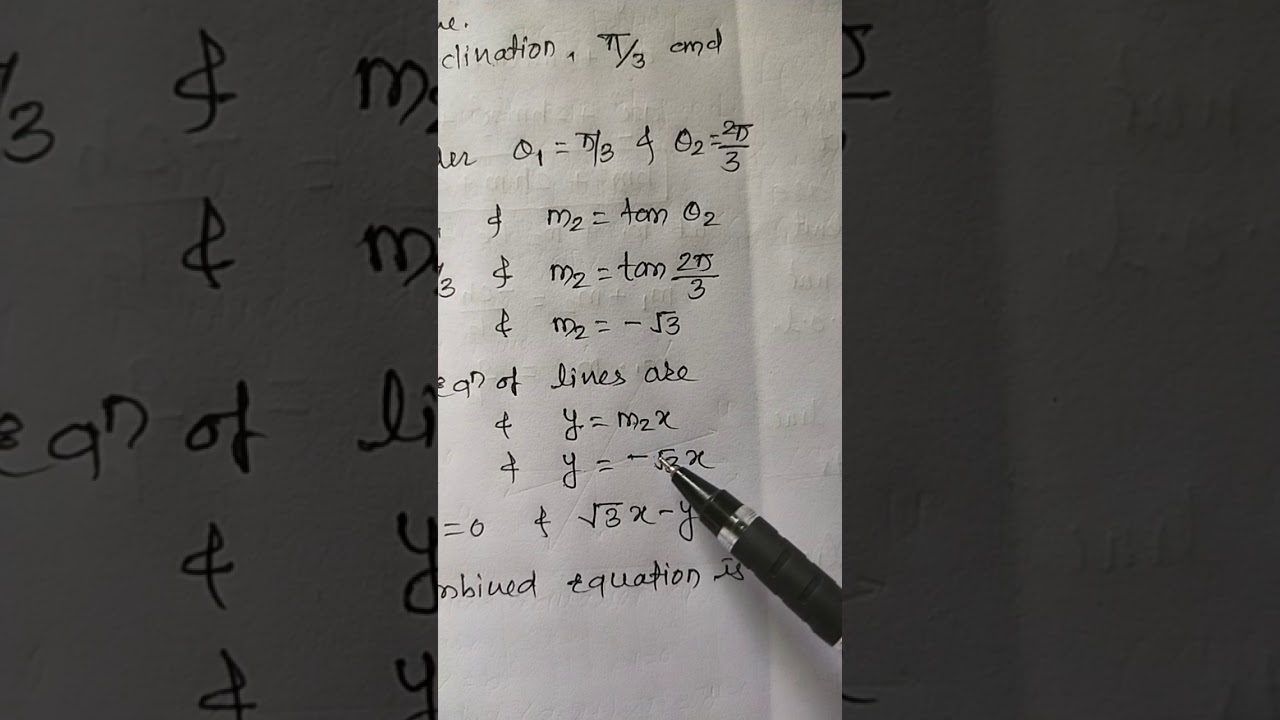 clination, π/3 and
θ₁ = π/3 & θ₂ = 2π/3
& m₂ = tan θ₂
/3 & m₂ = tan 2π/3
& m₂ = -√3
eqⁿ of lines are
& y = m₂x
& y = -√3x
=0 & √3x - y
mbined equation is